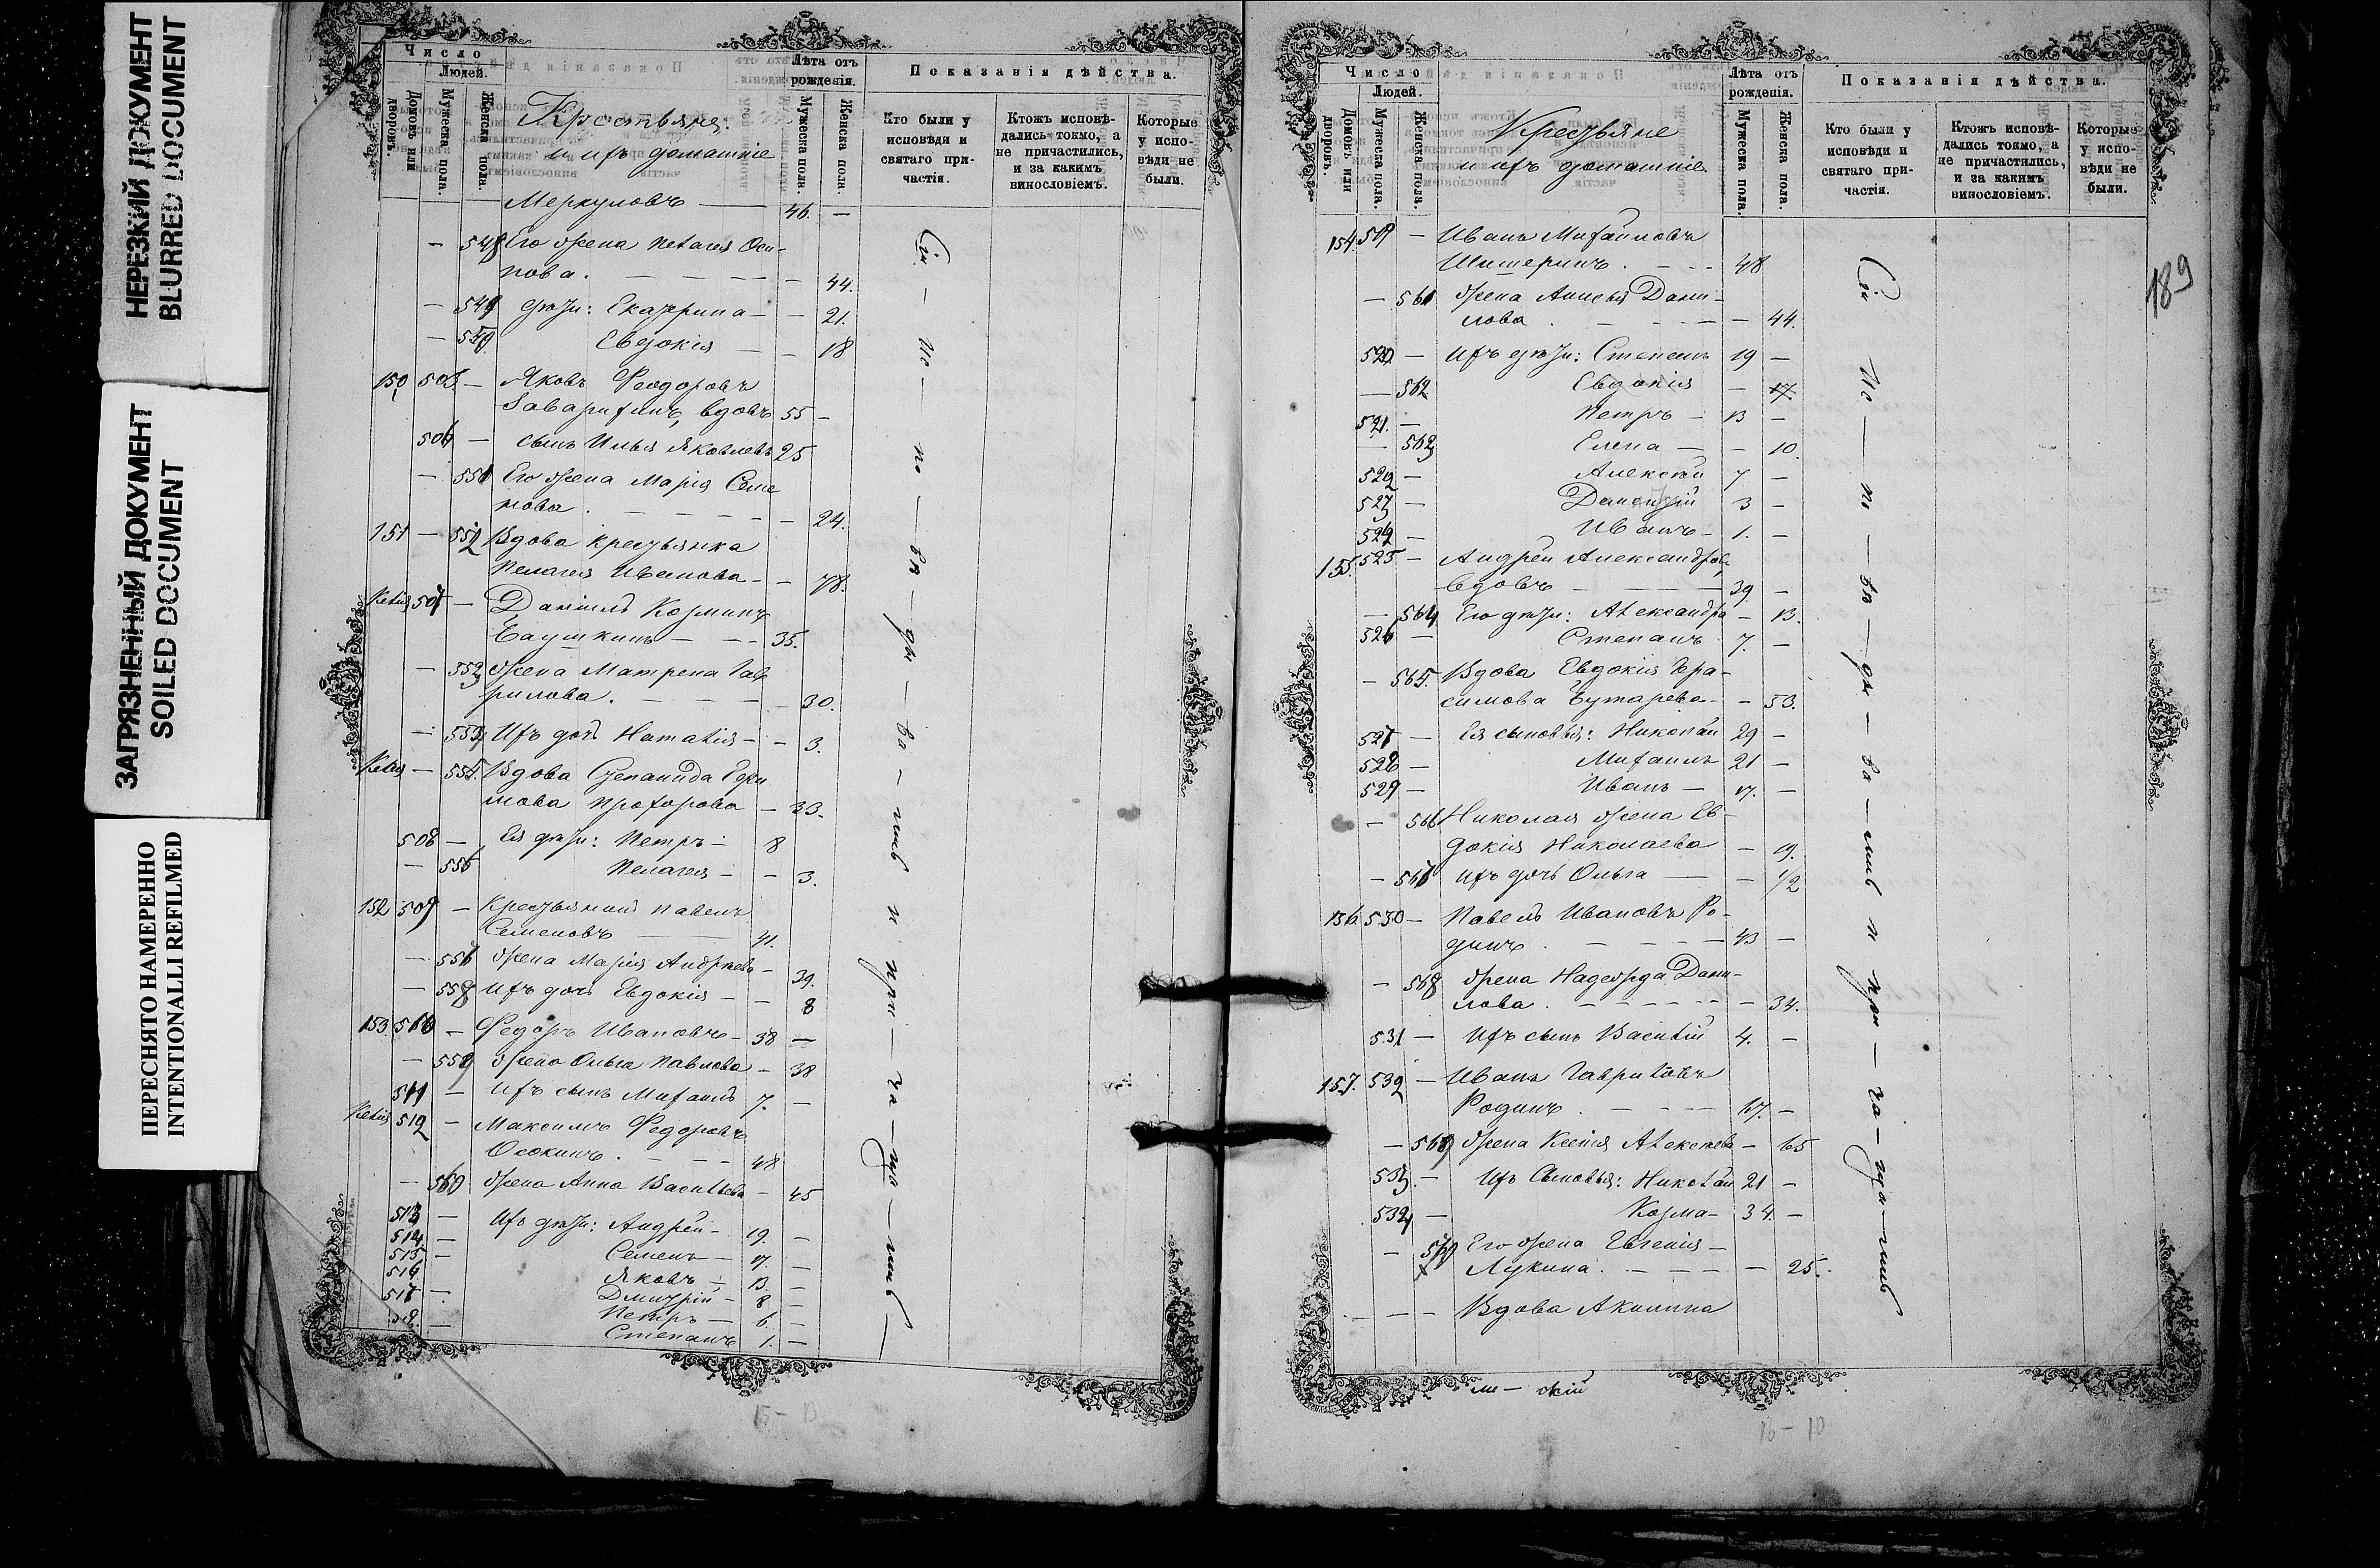 НЕРЕЗКИЙ ДОКУМЕНТ
BLURRED DOCUMENT
ЗАГРЯЗНЕННЫЙ ДОКУМЕНТ
SOILED DOCUMENT
ПЕРЕСНЯТО НАМЕРЕННО
INTENTIONALLI REFILMED
Число
Людей.
Домовъ или дворовъ.
Мужеска пола.
Женска пола.
Крестьяне
и ихъ домашніе
Лѣта отъ рожденія.
Мужеска пола.
Женска пола.
Показанія дѣйства.
Кто были у исповѣди и святаго причастія.
Ктожъ исповѣдались токмо, а не причастились, и за какимъ винословіемъ.
Которые у исповѣди не были.
Меркуловъ — 46. —
— 548 Его жена Пелагея Оси-
пова. — 44.
— 549 дѣти: Екатерина — — 21.
— 550 Евдокія — — 18
150 505 — Яковъ Феодоровъ
Заварихинъ, вдовъ 55 —
506 — сынъ Илья Яковлевъ 25
— 551 Его жена Марія Семе
нова. — 24.
151 — 552 Вдова крестьянка
Пелагея Иванова — — 78.
Келія 507 — Даніилъ Козминъ
Баушкинъ — 35.
— 553 жена Матрена Гав
рилова. — 30.
— 554 Ихъ дочь Наталія — — 3.
Келія — 555 Вдова Степанида
Прохорова — 33.
508 — Ея дѣти: Петръ — 8
— 556 Пелагея — — 3.
152 509 — Крестьянинъ Павелъ
Семеновъ — 41.
— 557 жена Марія Андреева — 39.
— 558 Ихъ дочь Евдокія — — 8
153. 510 — Федоръ Ивановъ — 38 —
— 559 жена Ольга Павлова — 38
511 — ихъ сынъ Михаилъ 7. —
Келія 512 — Максимъ Федоровъ
Осокинъ. — 48
— 560 жена Анна Васильева — 45
513 — Ихъ дѣти: Андрей — 19. —
514 — Семенъ — 17. —
515 — Яковъ — 13. —
516 Дмитрій — 8 —
517 — Петръ — 6. —
518. — Степанъ 1. —
Сіи — ис — по — вѣ — ды — ва — лись и при — ча — ща — лись —
Число
Людей.
Домовъ или дворовъ.
Мужеска пола.
Женска пола.
Крестьяне
и ихъ домашніе
Лѣта отъ рожденія.
Мужеска пола.
Женска пола.
Показанія дѣйства.
Кто были у исповѣди и святаго причастія.
Ктожъ исповѣдались токмо, а не причастились, и за какимъ винословіемъ.
Которые у исповѣди не были.
189
154. 519 — Иванъ Михаиловъ
Шишеринъ. — 48
— 561 жена Анисья Дани-
лова. — — 44.
520. — Ихъ дѣти: Степанъ 19 —
— 562 Евдокія — 17.
521. — Петръ — 13 —
— 563 Елена — — 10.
522 — Алексѣй 7 —
523 — Дмитрій 3 —
524 — Иванъ — 1. —
155. 525 — Андрей Александровъ,
вдовъ — 39 —
— 564 Его дѣти: Александра — 13.
526 — Степанъ 7. —
— 565. Вдова Евдокія Гера-
симова Бутарева — — 53.
527 — Ея сыновья: Николай 29 —
528 — Михаилъ 21 —
529 — Иванъ — 17. —
— 566 Николая жена Ев-
докія Николаева — 19.
— 567 Ихъ дочь Ольга — — 1/2
156. 530 — Павелъ Ивановъ Ро-
динъ. — 43 —
— 568 жена Надежда Дани-
лова. — — 34.
531 — Ихъ сынъ Василій 4. —
157. 532 — Иванъ Гавриловъ
Родинъ. — 67. —
— 569 жена Ксенія Алексѣева — 65
533. — Ихъ Сыновья: Николай 21 —
534 — Козма — 34. —
— 570 Его жена Евгенія
Лукина. — — 25.
— — Вдова Акилина
Сіи — ис — по — вѣ — ды — ва — лись и при — ча — ща — лись
15 — 13
16 — 10